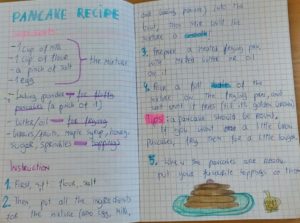 PANCAKE RECIPE
Ingredients:
- 1 cup of milk
- 1 cup of flour
- a pinch of salt
- 1 egg
the mixture
- baking powder for fluffy
pancakes (a pinch of it)
- butter/oil for frying
- bananas/fruits, maple syrup, honey,
sugar, sprinkles toppings
Instruction
1. First, sift flour, salt
2. Then put all the ingredients
for the mixture (egg, milk,
and baking powder) into the
bowl, then mix until the
mixture is smooth!
3. Prepare a heated frying pan
with melted butter or oil
on it
4. Pour a full of the
mixture on the frying pan, and
wait until it fries (til its golden brown)
tips: a pancake should be round,
If you want a little brown
pancakes, fry them for a little longer
5. When the pancakes are ready,
put your favourite toppings on them